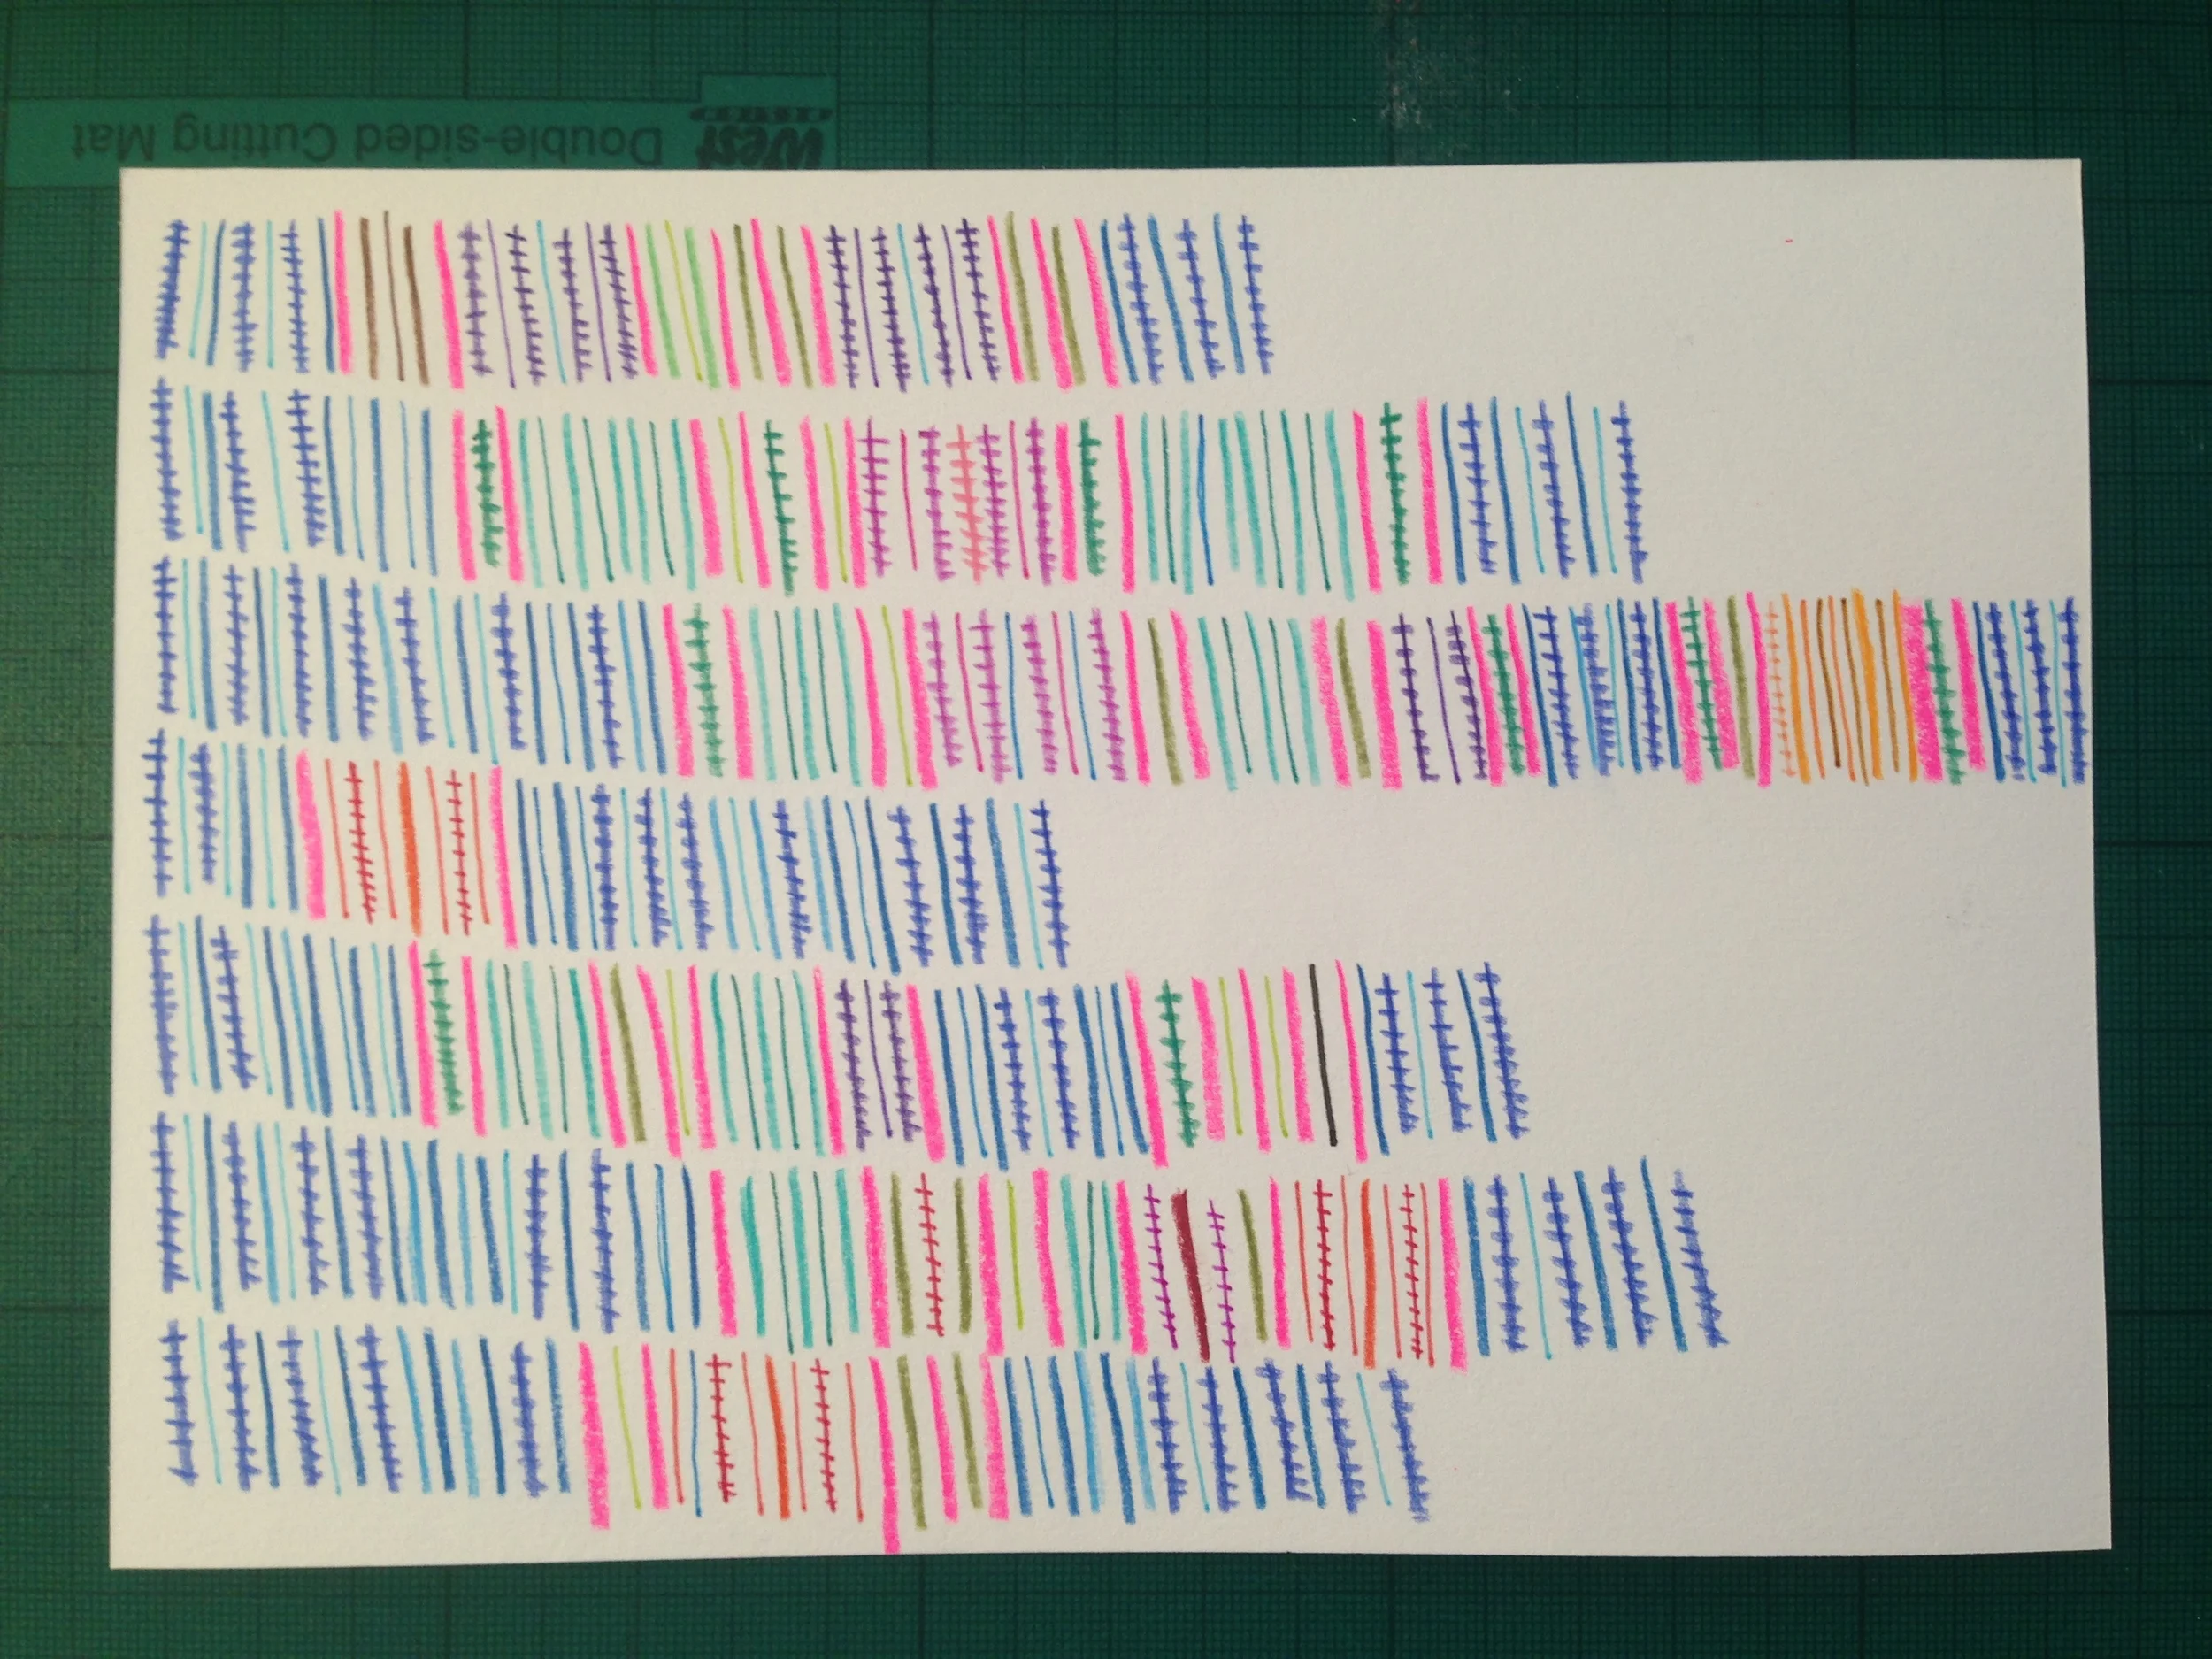 West
Double-sided Cutting Mat